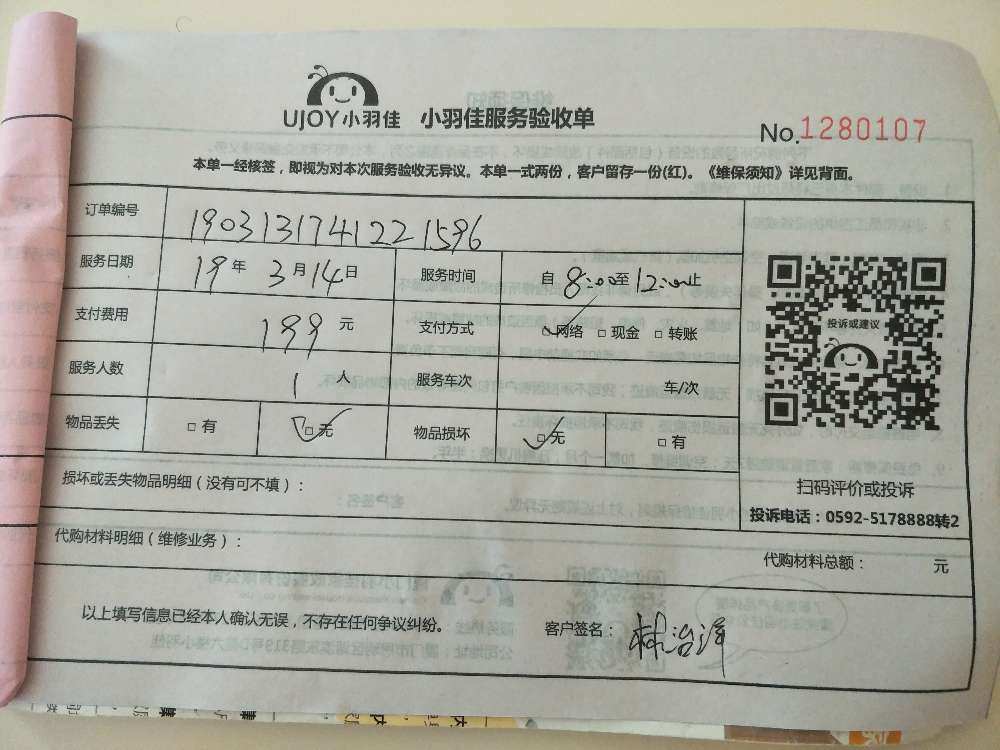 UJOY小羽佳 小羽佳服务验收单
No.1280107
本单一经核签，即视为对本次服务验收无异议。本单一式两份，客户留存一份(红)。《维保须知》详见背面。
订单编号 1903131741221596
服务日期 19年3月14日 服务时间 自8:00至12:00止
支付费用 199元 支付方式 ☑网络 □现金 □转账
服务人数 1人 服务车次 车/次
物品丢失 □有 ☑无 物品损坏 ☑无 □有
投诉或建议
扫码评价或投诉
投诉电话：0592-5178888转2
损坏或丢失物品明细（没有可不填）：
代购材料明细（维修业务）： 代购材料总额： 元
以上填写信息已经本人确认无误，不存在任何争议纠纷。 客户签名：